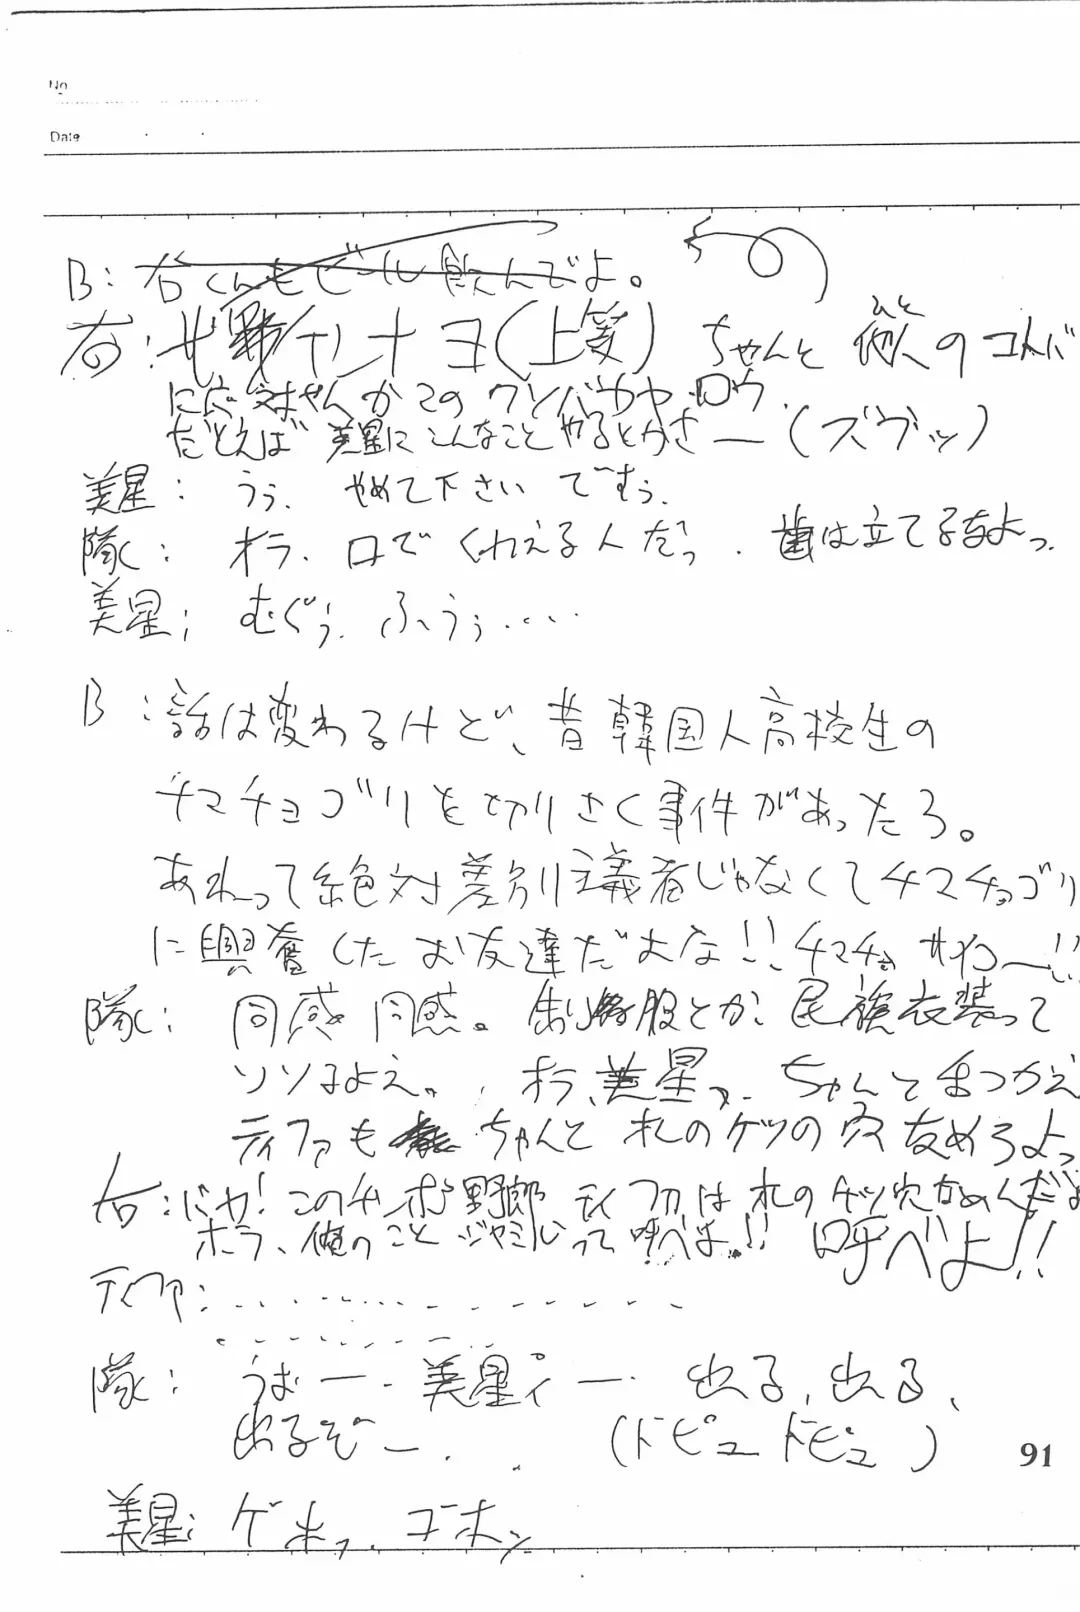 No.
Date
B: 右くんもビール飲んでよ。
右: ちゃんと 他人のコトバ
ひと
だとえば 美星にこんなことやるとかさー(ズヴッ)
美星: うぅ、やめて下さいですぅ。
隊: オラ、口でくわえる人だっ、歯は立てるなよっ。
美星: むぐぅ、ふうぅ....
B: 話は変わるけど、昔韓国人高校生の
チマチョゴリを切りさく事件があったろ。
あれって絶対差別主義者じゃなくてチマチョゴリ
に興奮したお友達だよな!! チマチョ
隊: 同感同感。制服とか民族衣装って
ソソるよえ。オラ、美星っ、ちゃんと
ティファも ちゃんと オレのケツの穴なめろよっ
右: にゃ!このチンポ野郎 ティファは オレのケツ穴なめんだよ
ホラ、俺のこと ジャミルって呼べよ!! 呼べよ!!
ティファ: ...............
...........
隊: うおー、美星ィー。出る、出る、
出るぞー。(ドピュドピュ)
美星: ゲホッ、ゴホン
91